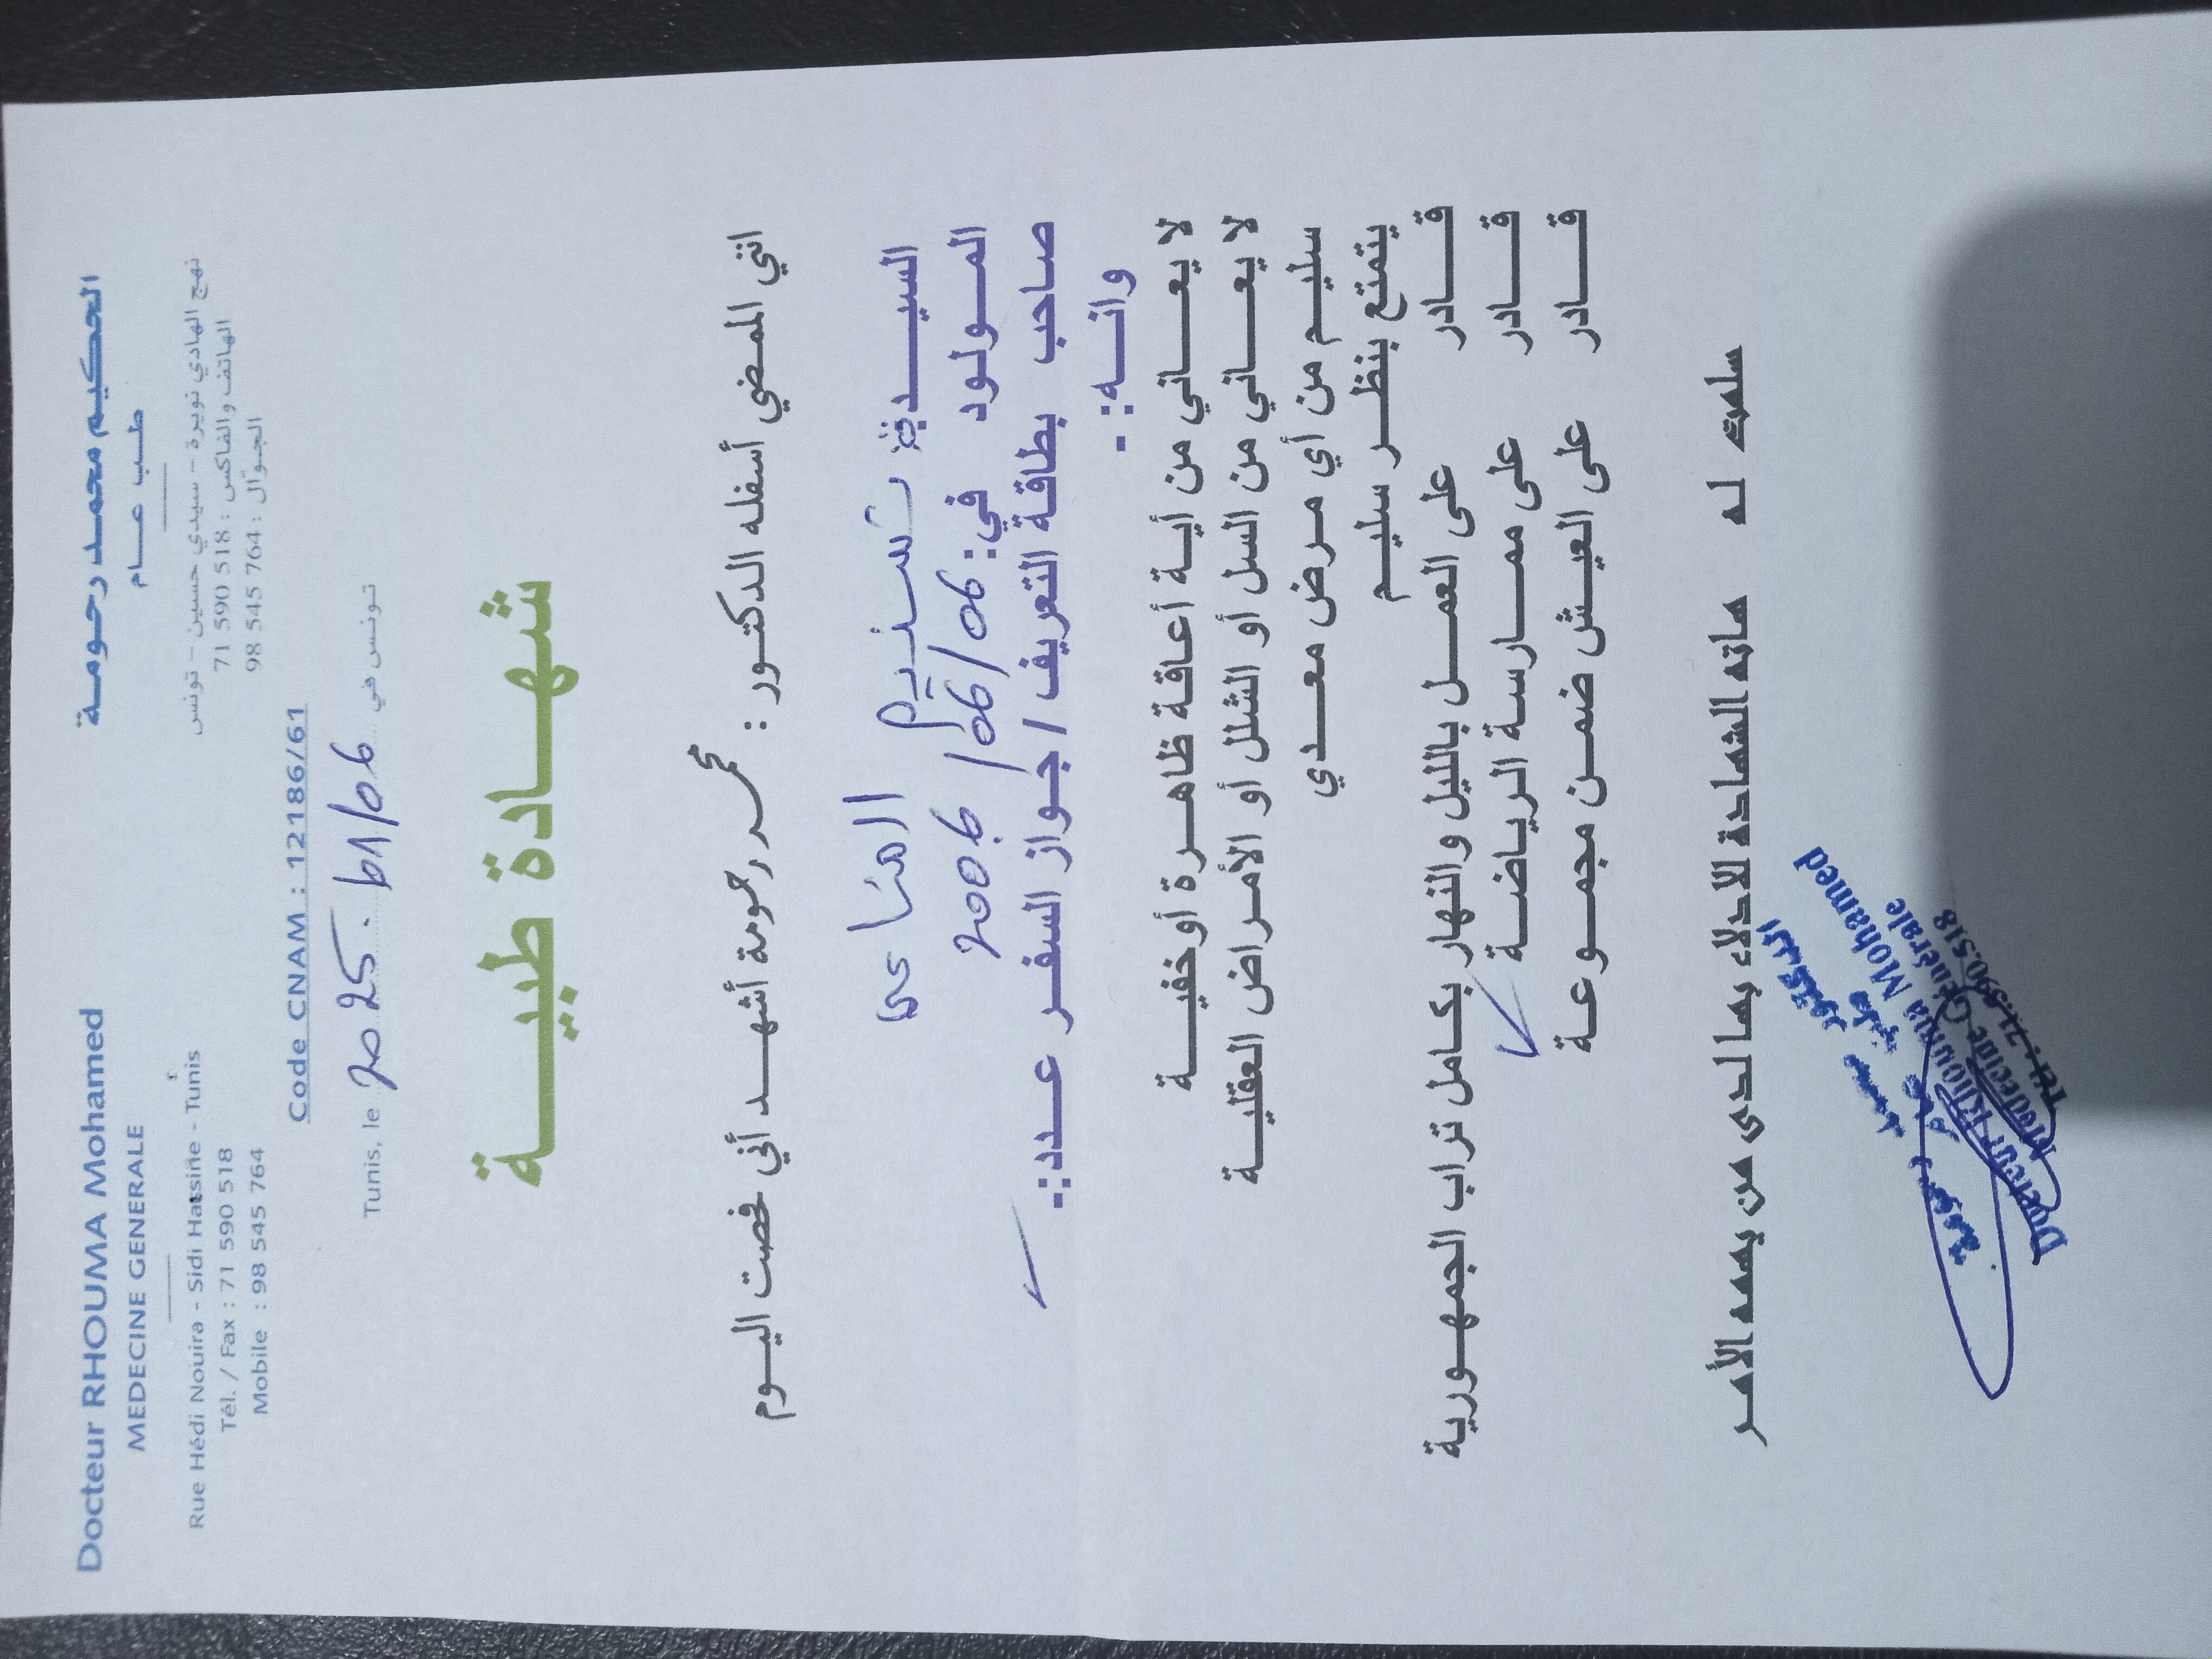 Docteur RHOUMA Mohamed
MEDECINE GENERALE
Rue Hédi Nouira - Sidi Hassine - Tunis
Tél. / Fax : 71 590 518
Mobile : 98 545 764
الحكيم محمد رحومة
طب عام
نهج الهادي نويرة - سيدي حسين - تونس
الهاتف والفاكس : 518 590 71
الجوّال : 764 545 98
Code CNAM : 12186/61
Tunis, le 2025 تونس في
شهادة طبية
انني الممضي أسفله الدكتور : محمد رحومة أشهد أني فحصت اليوم
السيدة تسنيم
المولود في: 06/06/2006
صاحب بطاقة التعريف / جواز السفر عدد:
وانه:
لا يعاني من أية أعاقة ظاهرة أو خفية
لا يعاني من السل أو الشلل أو الأمراض العقلية
سليم من أي مرض معدي
يتمتع بنظر سليم
قادر على العمل بالليل والنهار بكامل تراب الجمهورية
قادر على ممارسة الرياضة
قادر على العيش ضمن مجموعة
سلمت له هاته الشهادة للادلاء بها لدى من يهمه الأمر
الدكتور محمد رحومة
طب عام
Docteur Rhouma Mohammed
Médecine Générale
Tél: 71.590.518